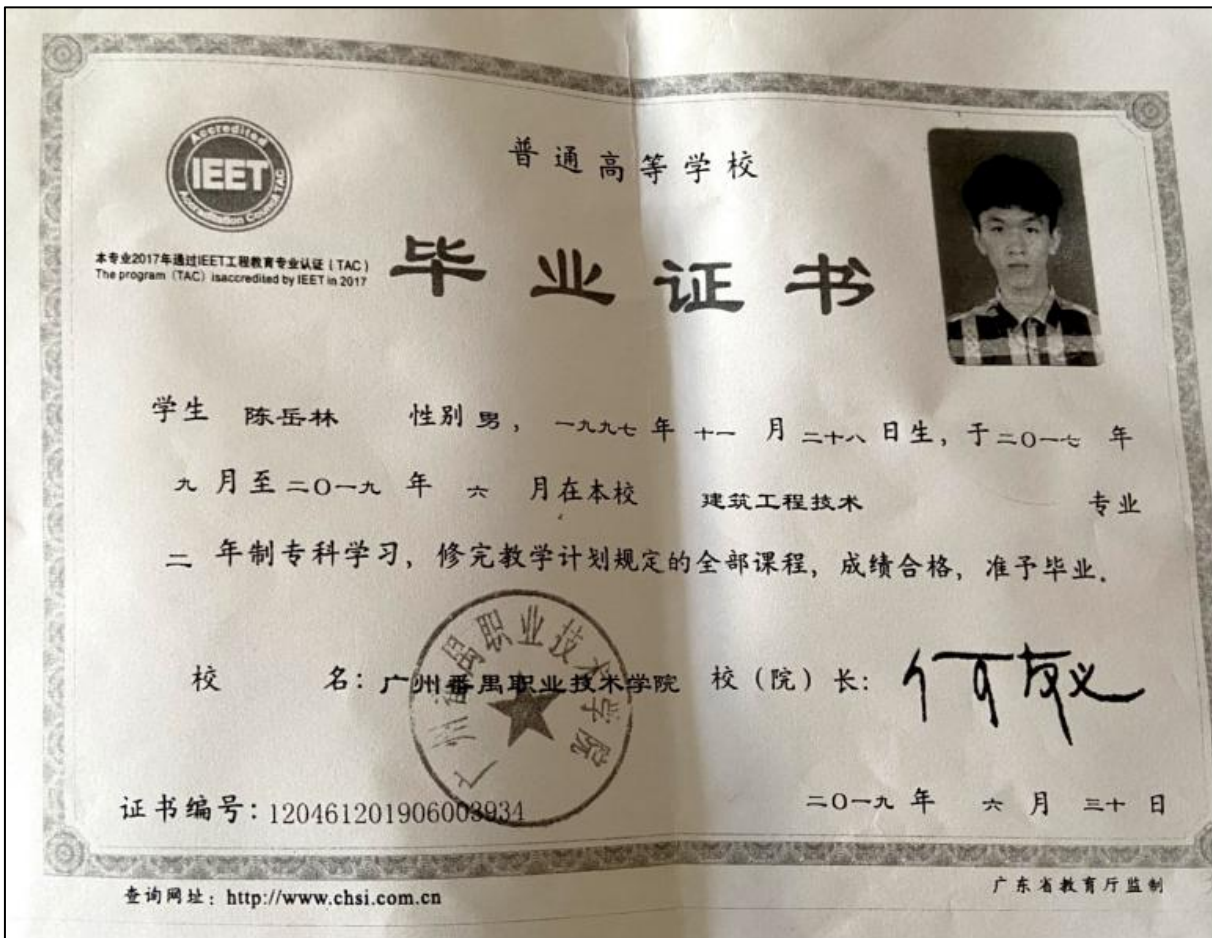 Accredited
IEET
Accreditation Council TAC
本专业2017年通过IEET工程教育专业认证（TAC）
The program（TAC）isaccredited by IEET in 2017
普通高等学校
毕业证书
学生 陈岳林 性别 男，一九九七 年 十一 月 二十八 日生，于二〇一七 年
九 月至二〇一九 年 六 月在本校 建筑工程技术 专业
二 年制专科学习，修完教学计划规定的全部课程，成绩合格，准予毕业。
校 名：广州番禺职业技术学院 校（院）长：何友义
广州番禺职业技术学院
证书编号：120461201906003934 二〇一九 年 六 月 三十 日
查询网址：http://www.chsi.com.cn 广东省教育厅监制